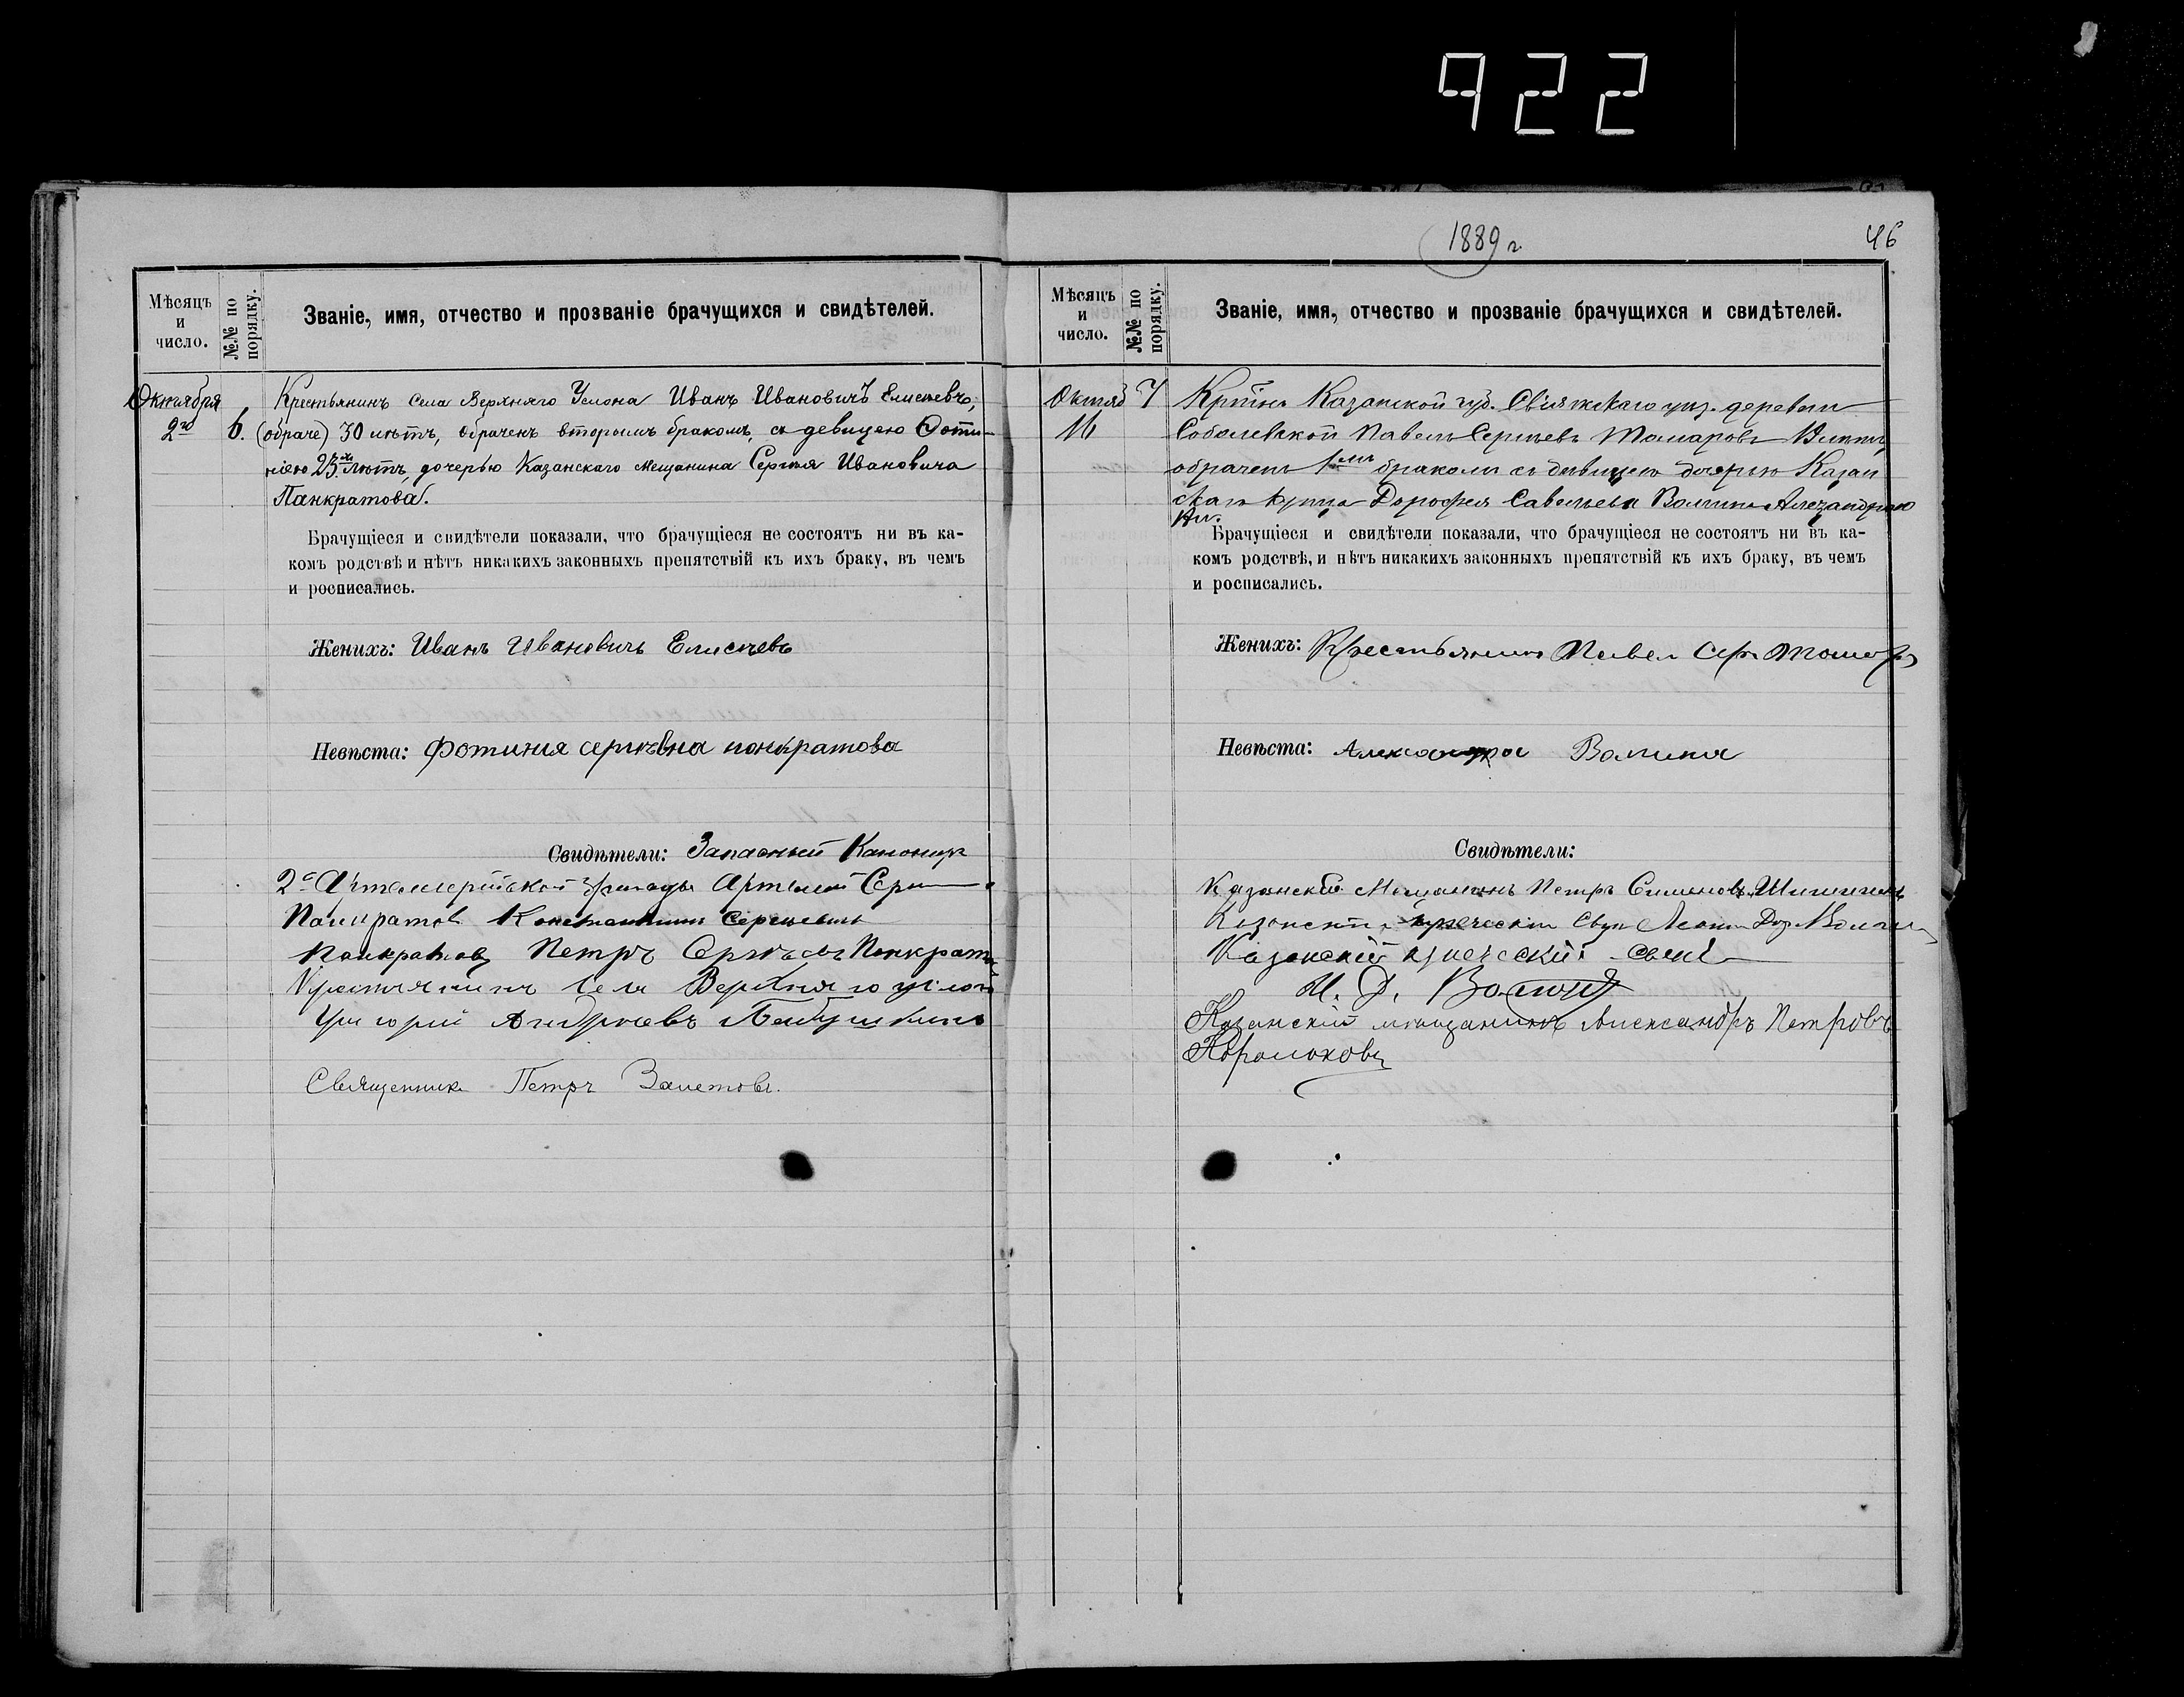 922
1889 г
46
Мѣсяцъ и число.
№№ по порядку.
Званіе, имя, отчество и прозваніе брачущихся и свидѣтелей.
Октября
2го
6.
Крестьянинъ села Верхняго Услона Иванъ Ивановичъ Елисѣевъ,
(обраче) 30 лѣтъ, обраченъ вторымъ бракомъ, съ девицею Фоти-
ніею 23 лѣтъ, дочерью Казанскаго мещанина Сергѣя Ивановича
Панкратова.
Брачущіеся и свидѣтели показали, что брачущіеся не состоятъ ни въ ка-
комъ родствѣ и нѣтъ никакихъ законныхъ препятствій къ ихъ браку, въ чемъ
и росписались.
Женихъ: Иванъ Ивановичъ Елисѣевъ
Невѣста: Фотиния сергѣвна понкратова
Свидѣтели: Запасный Канониръ
2й Артиллерійской бригады Артемій
Панкратов Константинъ Сергѣевичъ
Панкратовъ Петръ Сергѣевъ Понкратов
Крестьянинъ села Верхняго услона
Григорий Андреевъ Бабушкинъ
Священникъ Петръ Залетовъ.
Мѣсяцъ и число.
№№ по порядку.
Званіе, имя, отчество и прозваніе брачущихся и свидѣтелей.
Октяб
16
7
Казанской губ. Свіяжскаго уѣз. деревни
Соболевской Павелъ Сергѣевъ Томаровъ
обраченъ 1мъ бракомъ съ дѣвицею дочерью Казан
скаго купца Дорофея Савельева Волгина Александрою
Брачущіеся и свидѣтели показали, что брачущіеся не состоятъ ни въ ка-
комъ родствѣ, и нѣтъ никакихъ законныхъ препятствій къ ихъ браку, въ чемъ
и росписались.
Женихъ: Крестьянинъ Павел Сер. Томаров
Невѣста: Александра Волгина
Свидѣтели:
Казанскій Мещанинъ Петръ Симоновъ
Казанскій купеческій сын
Казанскій купеческій сынъ
И. Д. Волгинъ
Казанскій мещанинъ Александръ Петровъ
Корольковъ